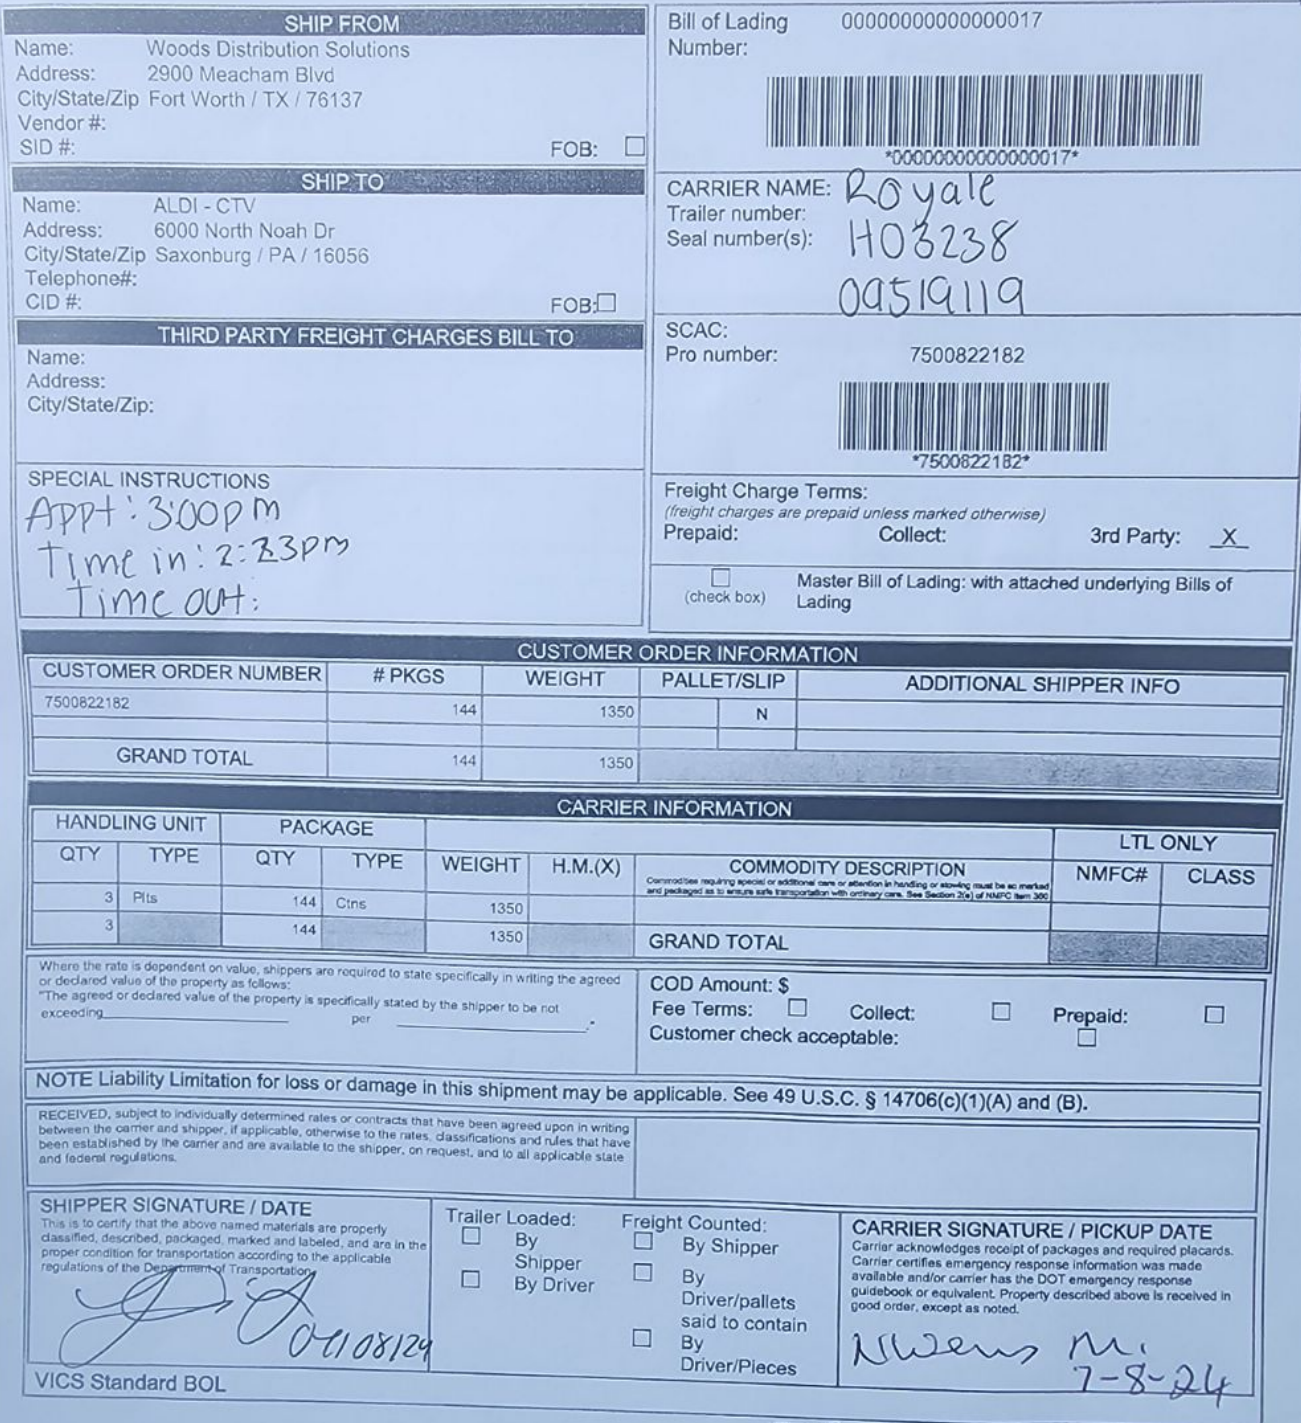 SHIP FROM
Name: Woods Distribution Solutions
Address: 2900 Meacham Blvd
City/State/Zip Fort Worth / TX / 76137
Vendor #:
SID #: FOB:
SHIP TO
Name: ALDI - CTV
Address: 6000 North Noah Dr
City/State/Zip Saxonburg / PA / 16056
Telephone#:
CID #: FOB:
THIRD PARTY FREIGHT CHARGES BILL TO
Name:
Address:
City/State/Zip:
SPECIAL INSTRUCTIONS
Appt: 3:00pm
Time in: 2:23pm
Time out:
Bill of Lading 00000000000000017
Number:
*00000000000000017*
CARRIER NAME: Royale
Trailer number:
Seal number(s): H03238
09519119
SCAC:
Pro number: 7500822182
*7500822182*
Freight Charge Terms:
(freight charges are prepaid unless marked otherwise)
Prepaid: Collect: 3rd Party: X
Master Bill of Lading: with attached underlying Bills of
(check box) Lading
CUSTOMER ORDER INFORMATION
CUSTOMER ORDER NUMBER # PKGS WEIGHT PALLET/SLIP ADDITIONAL SHIPPER INFO
7500822182 144 1350 N
GRAND TOTAL 144 1350
CARRIER INFORMATION
HANDLING UNIT PACKAGE LTL ONLY
QTY TYPE QTY TYPE WEIGHT H.M.(X) COMMODITY DESCRIPTION NMFC# CLASS
Commodities requiring special or additional care or attention in handling or stowing must be so marked
and packaged as to ensure safe transportation with ordinary care. See Section 2(e) of NMFC Item 360
3 Plts 144 Ctns 1350
3 144 1350 GRAND TOTAL
Where the rate is dependent on value, shippers are required to state specifically in writing the agreed
or declared value of the property as follows:
"The agreed or declared value of the property is specifically stated by the shipper to be not
exceeding per ."
COD Amount: $
Fee Terms: Collect: Prepaid:
Customer check acceptable:
NOTE Liability Limitation for loss or damage in this shipment may be applicable. See 49 U.S.C. § 14706(c)(1)(A) and (B).
RECEIVED, subject to individually determined rates or contracts that have been agreed upon in writing
between the carrier and shipper, if applicable, otherwise to the rates, classifications and rules that have
been established by the carrier and are available to the shipper, on request, and to all applicable state
and federal regulations.
SHIPPER SIGNATURE / DATE
This is to certify that the above named materials are properly
classified, described, packaged, marked and labeled, and are in the
proper condition for transportation according to the applicable
regulations of the Department of Transportation.
Trailer Loaded:
By
Shipper
By Driver
Freight Counted:
By Shipper
By
Driver/pallets
said to contain
By
Driver/Pieces
CARRIER SIGNATURE / PICKUP DATE
Carrier acknowledges receipt of packages and required placards.
Carrier certifies emergency response information was made
available and/or carrier has the DOT emergency response
guidebook or equivalent. Property described above is received in
good order, except as noted.
M.
7-8-24
VICS Standard BOL